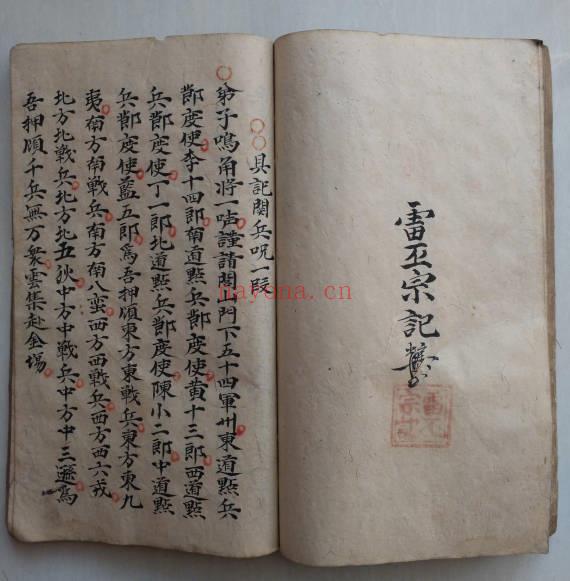 雷丕宗記
○○具記関兵呪一段
○弟子鳴角将一声謹請閭山門下五十四軍州東道點兵
節度使李十四郎南道點兵節度使黄十三郎西道點
兵節度使丁一郎北道點兵節度使陳小二郎中道點
兵節度使藍五郎為吾押頋東方東戰兵東方東九
夷南方南戰兵南方南八蛮西方西戰兵西方西六戎
北方北戰兵北方北五狄中方中戰兵中方中三為
吾押頋千兵無万衆雲集赴金場
nayona.cn